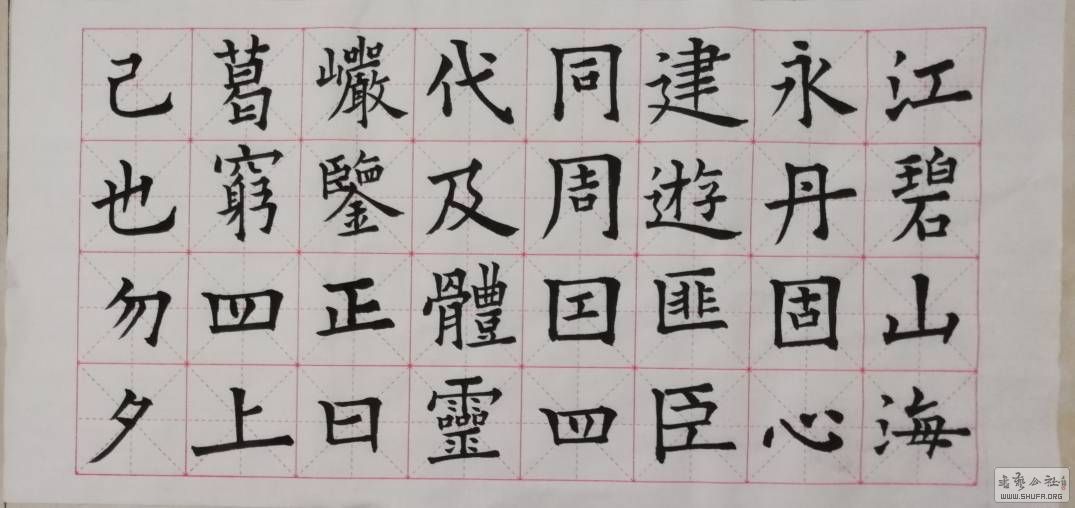 江碧山海
永丹固心
建遊匪臣
同周囙四
代及體靈
巗鑒正曰
葛窮四上
己也勿夕
书艺公社
WWW.SHUFA.ORG